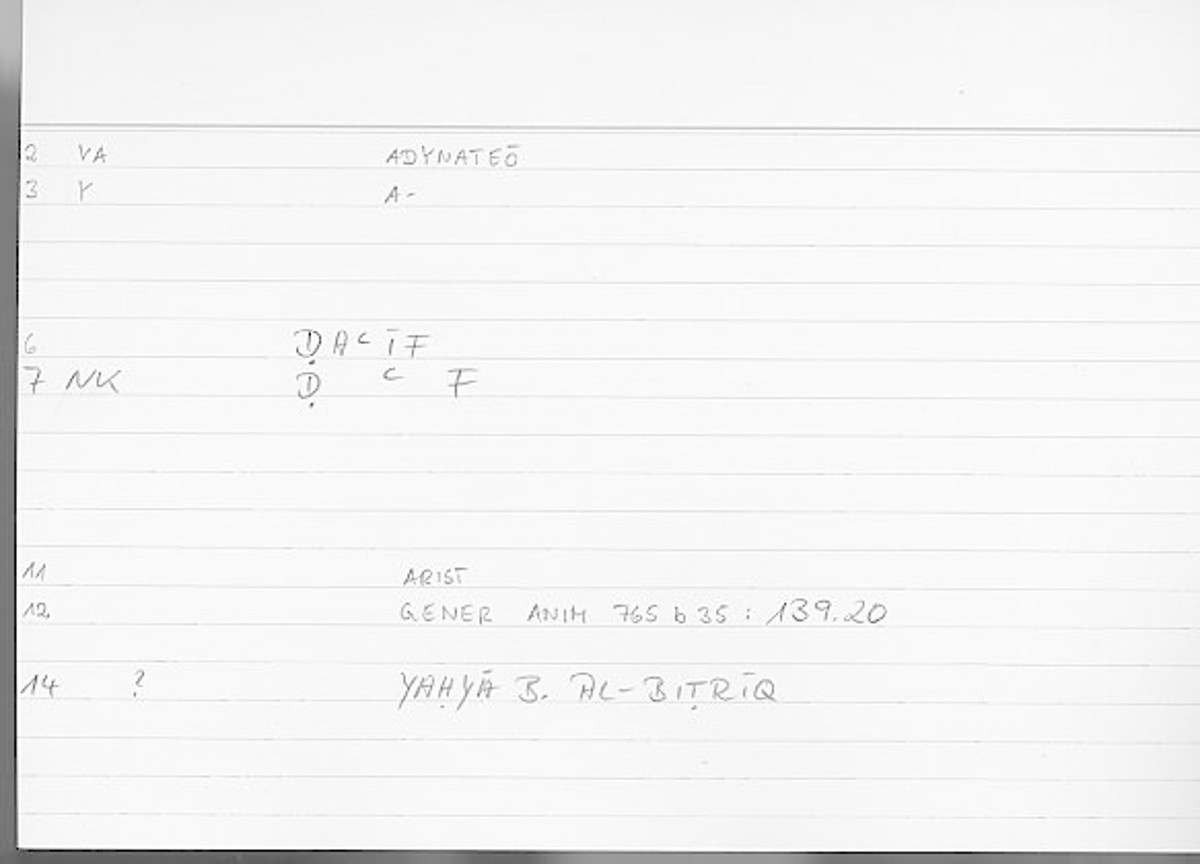 2 VA ADYNATEŌ
3 Y A-
6 ḌAʿĪF
7 NK Ḍ ʿ F
11 ARIST
12 GENER ANIM 765 b 35 : 139.20
14 ? YAḤYĀ B. AL-BIṬRĪQ